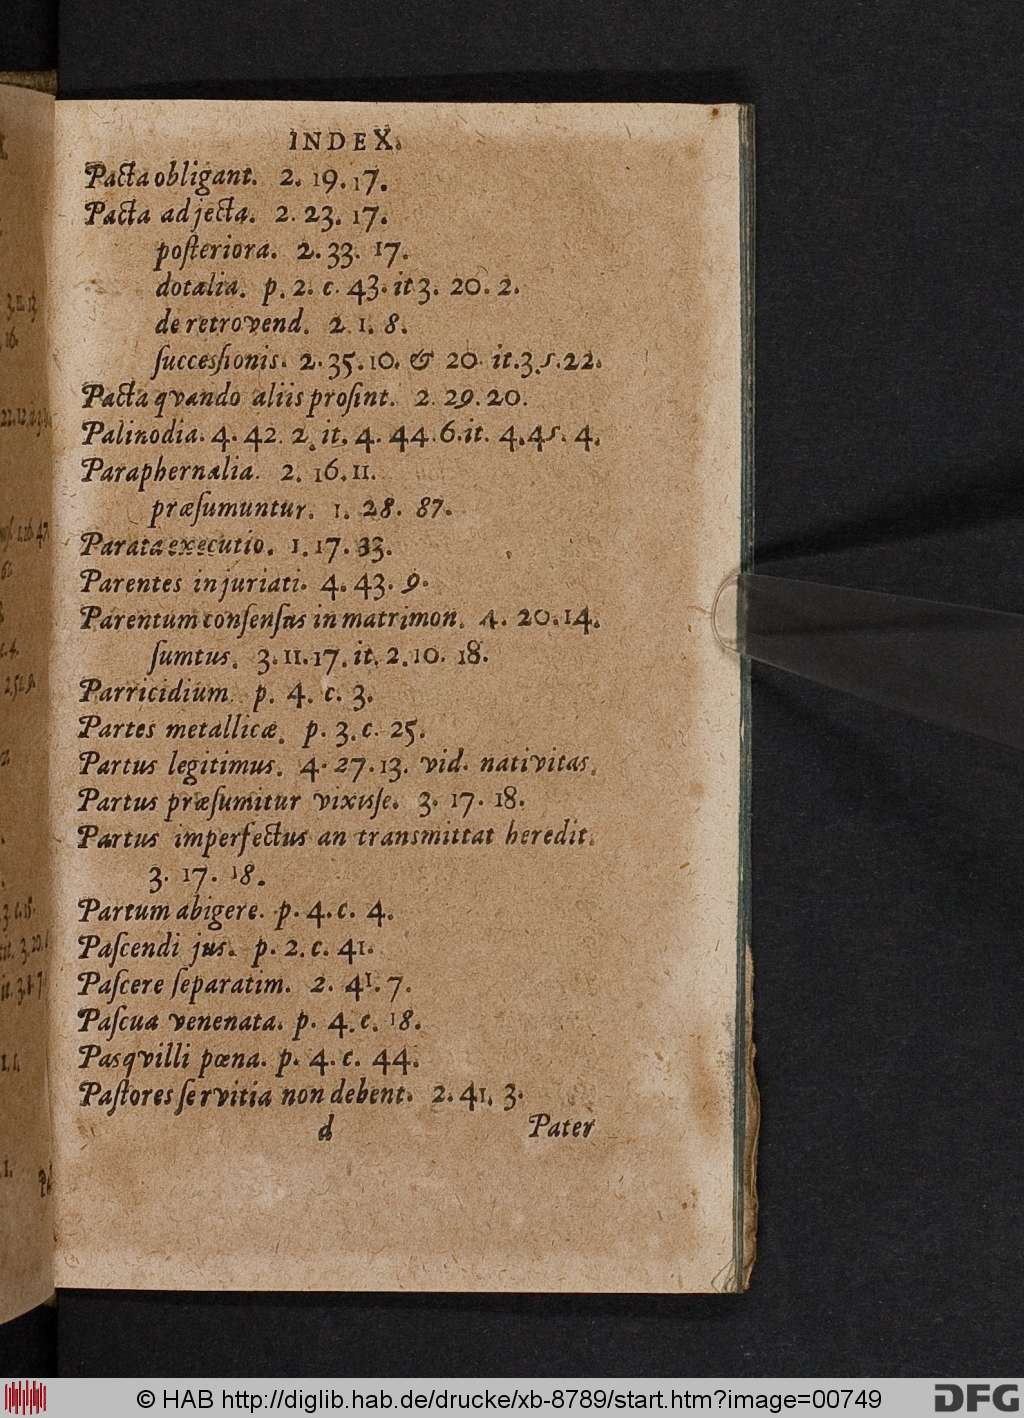 INDEX.
Pacta obligant. 2. 19. 17.
Pacta adjecta. 2. 23. 17.
posteriora. 2. 33. 17.
dotalia. p. 2. c. 43. it 3. 20. 2.
de retrovend. 2. 1. 8.
successionis. 2. 35. 10. & 20. it. 3. 5. 22.
Pacta qvando aliis prosint. 2. 29. 20.
Palinodia. 4. 42. 2. it. 4. 44. 6. it. 4. 45. 4.
Paraphernalia. 2. 16. 11.
præsumuntur. 1. 28. 87.
Parata executio. 1. 17. 33.
Parentes injuriati. 4. 43. 9.
Parentum consensus in matrimon. 4. 20. 14.
sumtus. 3. 11. 17. it. 2. 10. 18.
Parricidium. p. 4. c. 3.
Partes metallicæ. p. 3. c. 25.
Partus legitimus. 4. 27. 13. vid. nativitas.
Partus præsumitur vixisse. 3. 17. 18.
Partus imperfectus an transmittat heredit.
3. 17. 18.
Partum abigere. p. 4. c. 4.
Pascendi jus. p. 2. c. 41.
Pascere separatim. 2. 41. 7.
Pascua venenata. p. 4. c. 18.
Pasqvilli pœna. p. 4. c. 44.
Pastores servitia non debent. 2. 41. 3.
d Pater
© HAB http://diglib.hab.de/drucke/xb-8789/start.htm?image=00749
DFG